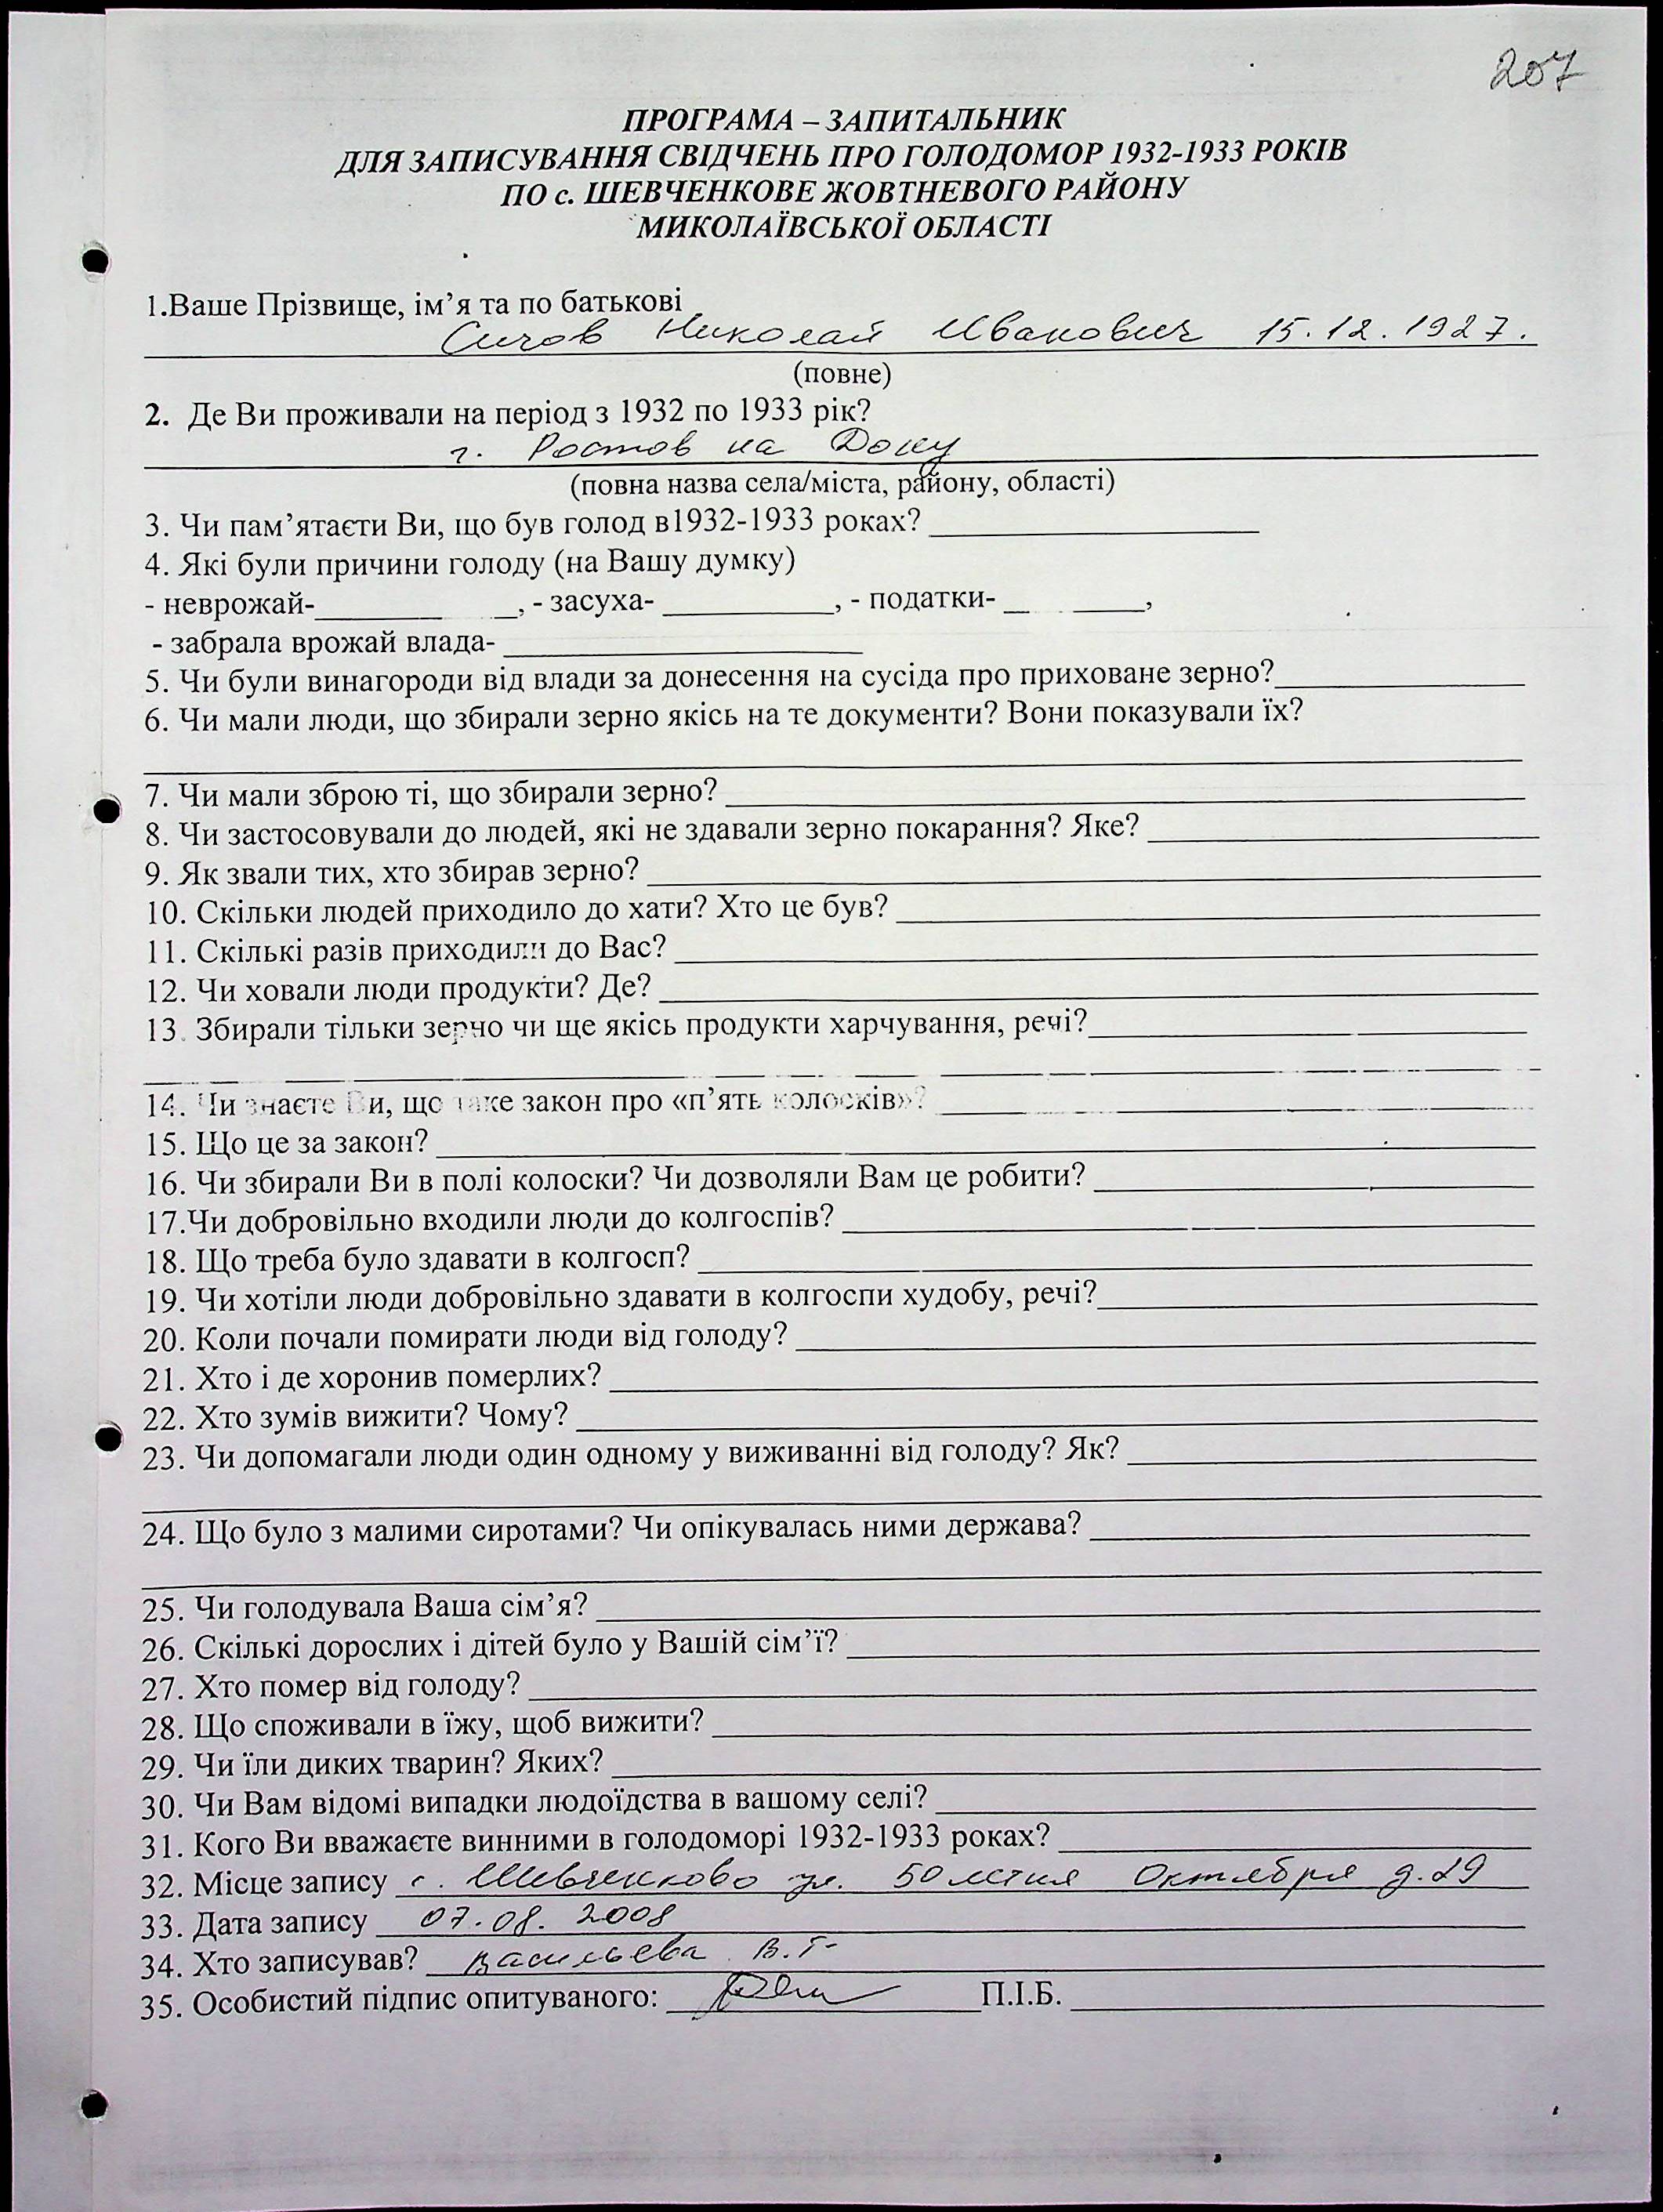 207
ПРОГРАМА – ЗАПИТАЛЬНИК
ДЛЯ ЗАПИСУВАННЯ СВІДЧЕНЬ ПРО ГОЛОДОМОР 1932-1933 РОКІВ
ПО с. ШЕВЧЕНКОВЕ ЖОВТНЕВОГО РАЙОНУ
МИКОЛАЇВСЬКОЇ ОБЛАСТІ
1.Ваше Прізвище, ім’я та по батькові
Сичов Николай Иванович 15.12.1927.
(повне)
2. Де Ви проживали на період з 1932 по 1933 рік?
г. Ростов на Дону
(повна назва села/міста, району, області)
3. Чи пам’ятаєти Ви, що був голод в1932-1933 роках?
4. Які були причини голоду (на Вашу думку)
- неврожай-, - засуха- , - податки- ,
- забрала врожай влада-
5. Чи були винагороди від влади за донесення на сусіда про приховане зерно?
6. Чи мали люди, що збирали зерно якісь на те документи? Вони показували їх?
7. Чи мали зброю ті, що збирали зерно?
8. Чи застосовували до людей, які не здавали зерно покарання? Яке?
9. Як звали тих, хто збирав зерно?
10. Скільки людей приходило до хати? Хто це був?
11. Скількі разів приходили до Вас?
12. Чи ховали люди продукти? Де?
13. Збирали тільки зерно чи ще якісь продукти харчування, речі?
14. Чи знаєте Ви, що таке закон про «п’ять колосків»?
15. Що це за закон?
16. Чи збирали Ви в полі колоски? Чи дозволяли Вам це робити?
17.Чи добровільно входили люди до колгоспів?
18. Що треба було здавати в колгосп?
19. Чи хотіли люди добровільно здавати в колгоспи худобу, речі?
20. Коли почали помирати люди від голоду?
21. Хто і де хоронив померлих?
22. Хто зумів вижити? Чому?
23. Чи допомагали люди один одному у виживанні від голоду? Як?
24. Що було з малими сиротами? Чи опікувалась ними держава?
25. Чи голодувала Ваша сім’я?
26. Скількі дорослих і дітей було у Вашій сім’ї?
27. Хто помер від голоду?
28. Що споживали в їжу, щоб вижити?
29. Чи їли диких тварин? Яких?
30. Чи Вам відомі випадки людоїдства в вашому селі?
31. Кого Ви вважаєте винними в голодоморі 1932-1933 роках?
32. Місце запису с. Шевченково ул. 50 летия Октября д.29
33. Дата запису 07.08.2008
34. Хто записував? Васильева В.Г.
35. Особистий підпис опитуваного: П.І.Б.